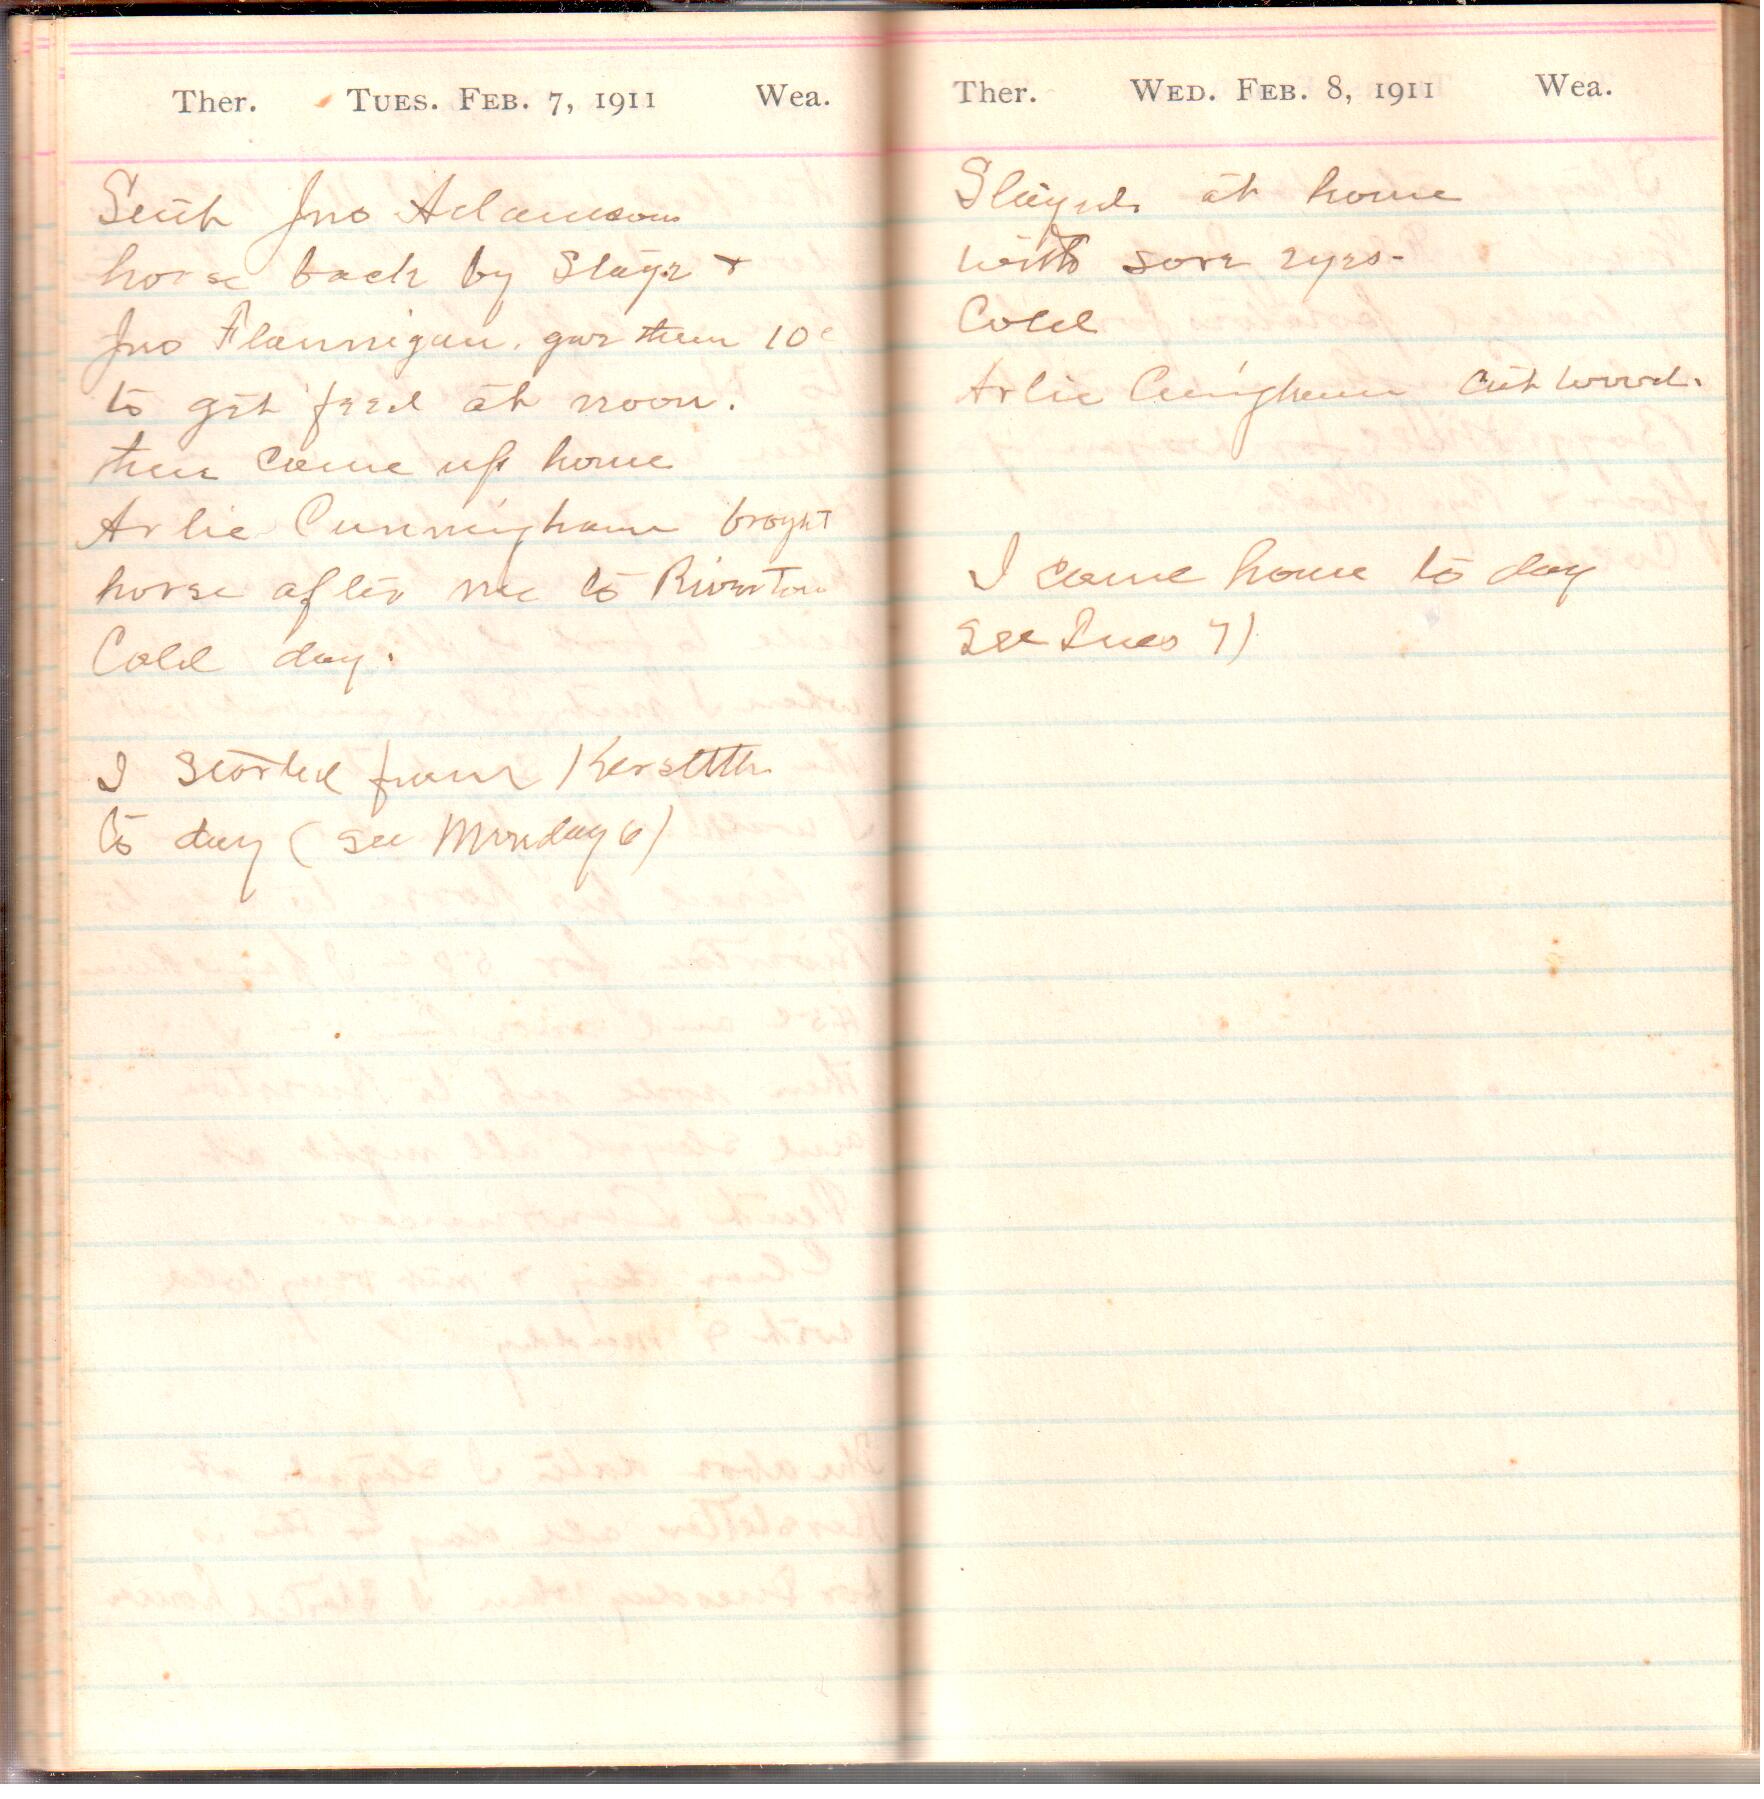 Ther. TUES. FEB. 7, 1911 Wea.
Sent Jno Adamson
horse back by Stage &
Jno Flannigan. gav them 10c
to get feed at noon.
then come up home
Arlie Cunningham broght
horse after me to Riverton
Cold day.
I started from Kerstetter
to day (see Monday 6)
Ther. WED. FEB. 8, 1911 Wea.
Stayed at home
with sore eyes-
Cold
Arlie Cuningham cut wood.
I come home to day
see Tues 7)